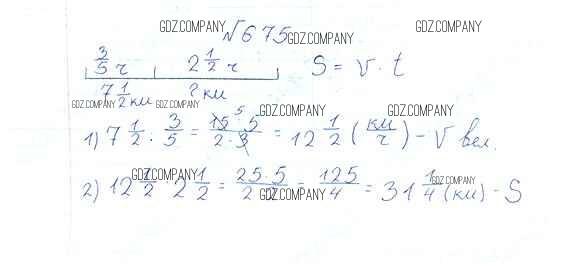 GDZ.COMPANY GDZ.COMPANY
№675
GDZ.COMPANY
3/5 ч 2 1/2 ч S = v · t
7 1/2 км ? км
GDZ.COMPANY GDZ.COMPANY GDZ.COMPANY GDZ.COMPANY
1) 7 1/2 : 3/5 = 15 · 5 / 2 · 3 = 12 1/2 (км/ч) - V вел.
GDZ.COMPANY GDZ.COMPANY
2) 12 1/2 · 2 1/2 = 25 · 5 / 2 · 2 = 125/4 = 31 1/4 (км) - S
GDZ.COMPANY